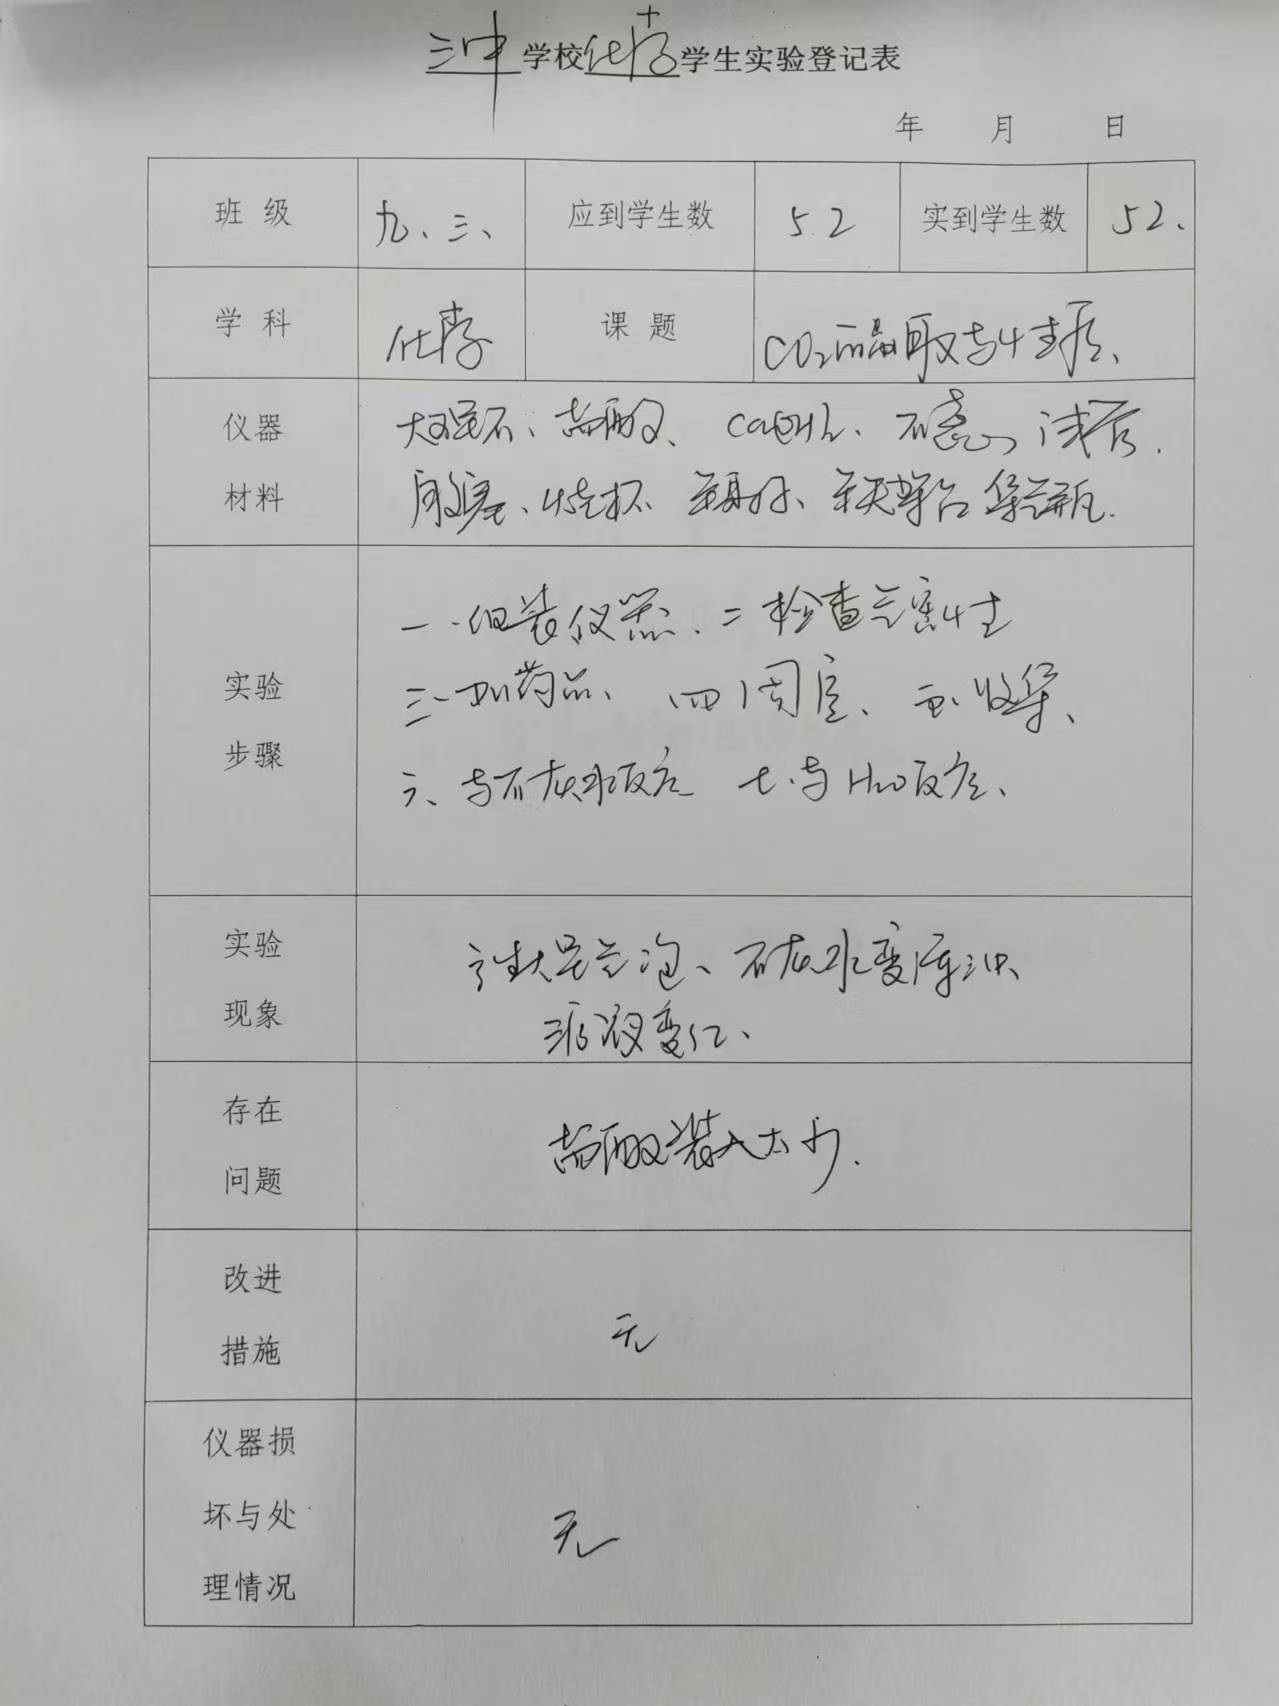 三中学校化学学生实验登记表
年 月 日
班 级 九、三、 应到学生数 52 实到学生数 52、
学 科 化学 课 题 CO₂的制取与性质、
仪器 大理石、盐酸、Ca(OH)₂、石蕊、试管.
材料 胶塞、烧杯、铁架台、集气瓶.
一.组装仪器、二检查气密性
实验 三、加药品、四、固定、五、收集、
步骤
六、与石灰水反应 七.与H₂O反应、
实验 产生大量气泡、石灰水变浑浊、
现象 溶液变红、
存在 盐酸装入太少.
问题
改进
措施 无
仪器损
坏与处 无
理情况